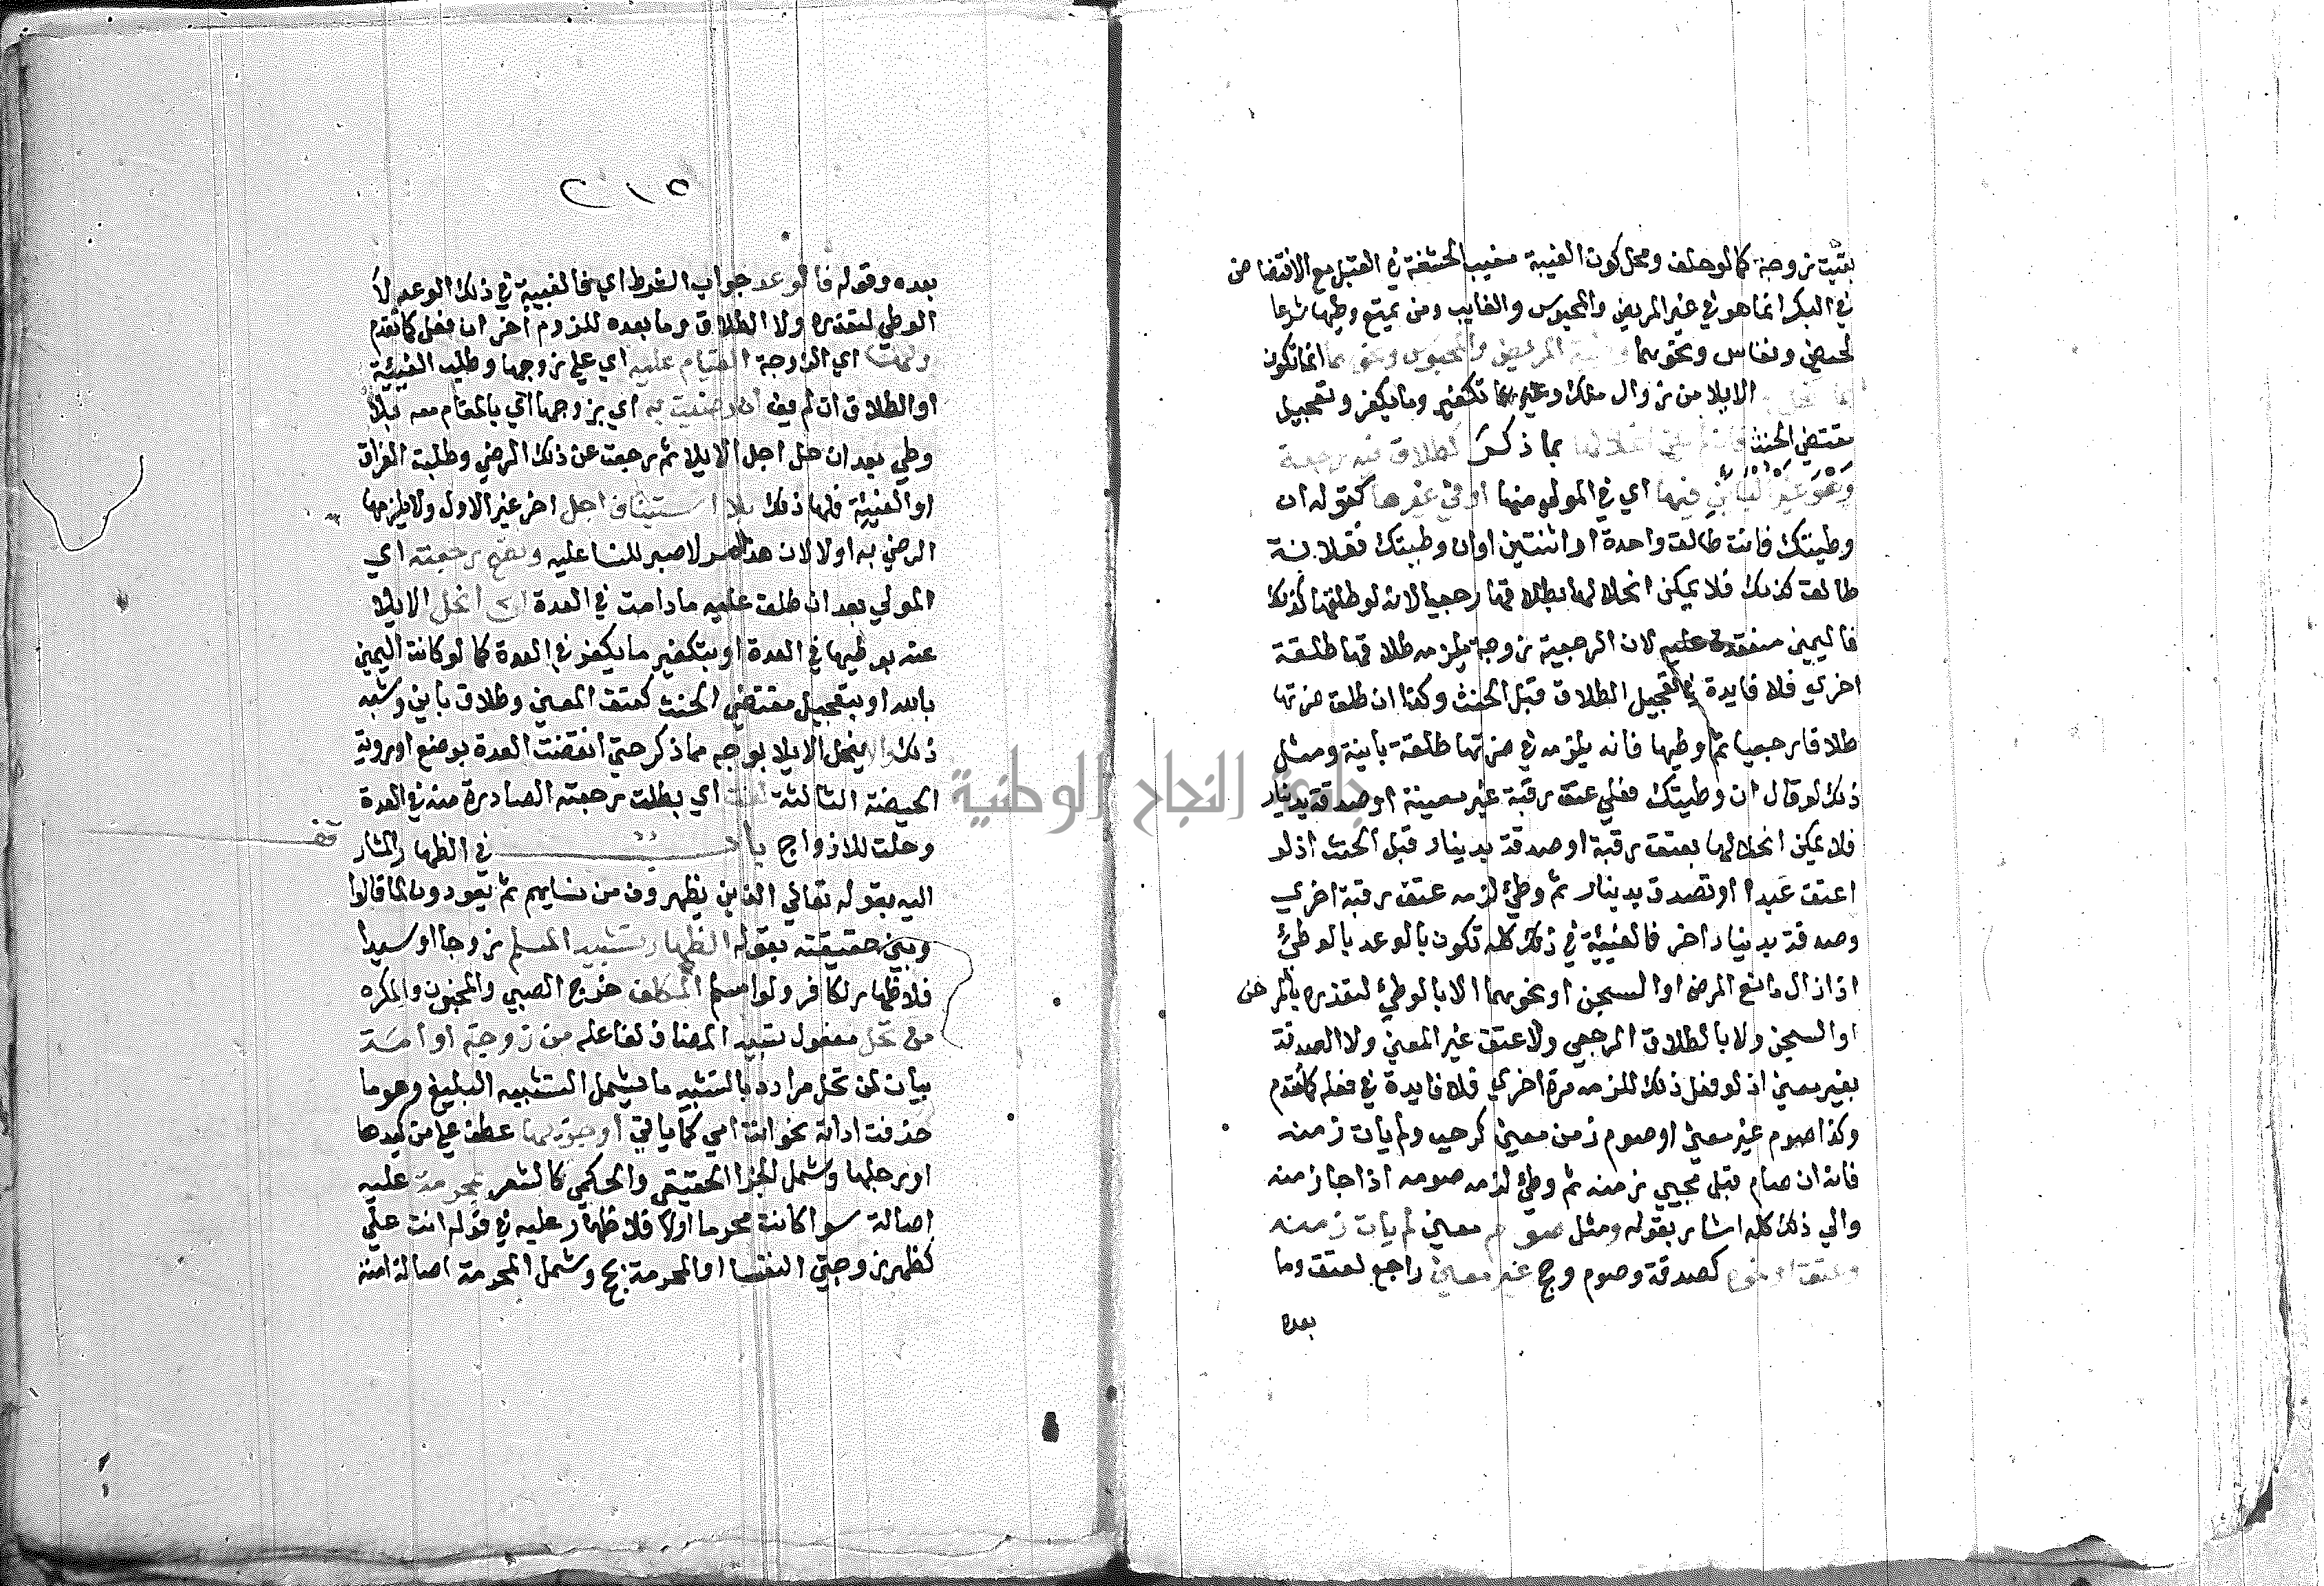 بقيت زوجة كما لو حلف ومحل كون الفيئة مغيب الحشفة في القبل مع الافتضاض
في البكر انما هو في غير المريض والمحبوس والغايب ومن يمتنع وطيها شرعا
لحيض ونفاس ونحوهما وفيئة المريض والمحبوس ونحوهما انما تكون
الايلا من زوال ملك وغيرها تكفير ما يكفر وتعجيل
مقتضي الحنث انحلالها بما ذكر كطلاق فيه رجعة
وهو غير البائن فيها اي في المولي منها او في غيرها كقوله ان
وطيتك فانت طالق واحدة او اثنتين او ان وطيتك ففلانة
طالق كذلك فلا يمكن انحلالها بطلاقها رجعيا لانه لو طلقها كذلك
فاليمين منعقدة عليه لان الرجعية زوجة يلزمه طلاقها طلقة
اخري فلا فايدة في تعجيل الطلاق قبل الحنث وكذا ان طلق ضرتها
طلاقا رجعيا ثم وطيها فانه يلزمه في ضرتها طلقة باينة ومثل
ذلك لو قال ان وطيتك فعلي عتق رقبة غير معينة او صدقة بدينار
فلا يمكن انحلالها بعتق رقبة او صدقة بدينار قبل الحنث اذ لو
اعتق عبدا او تصدق بدينار ثم وطئ لزمه عتق رقبة اخري
وصدقة بدينار اخر فالفيئة في ذلك كله تكون بالوعد بالوطئ
اذا زال مانع المرض او السجن او نحوهما الا بالوطئ لتعذره بالمرض
او السجن ولا بالطلاق الرجعي ولا عتق غير المعين ولا الصدقة
بغير معين اذ لو فعل ذلك للزمه مرة اخري فلا فايدة في فعله كما تقدم
وكذا صوم غير معين او صوم زمن معين كرجب ولم يات زمنه
فانه ان صام قبل مجيي زمنه ثم وطئ لزمه صومه اذا جا زمنه
والي ذلك كله اشار بقوله ومثل صوم معين لم يات زمنه
وعتق او نحوه كصدقة وصوم وحج غير معين راجع لعتق وما
بعده
٢١٥
بعده وقوله فالوعد جواب الشرط اي فالفيئة في ذلك الوعد لا
الوطي لتعذره ولا الطلاق وما بعده للزوم اخر ان فعل كما تقدم
ولها اي الزوجة القيام عليه اي علي زوجها وطلب الفيئة
او الطلاق ان لم يف ان رضيت به اي بزوجها اي بالمقام معه بلا
وطي بعد ان حل اجل الايلا ثم رجعت عن ذلك الرضي وطلبت الفراق
او الفيئة فلها ذلك بلا استيناف اجل اخر غير الاول ولا يلزمها
الرضي به اولا لان هذا امر لا صبر للنسا عليه وتصح رجعته اي
المولي بعد ان طلق عليه ما دامت في العدة ان انحل الايلا
عنه بوطيها في العدة او بتكفير ما يكفر في العدة كما لو كانت اليمين
بالله او بتعجيل مقتضي الحنث كعتق المعين وطلاق باين وشبه
ذلك والا ينحل الايلا بوجه مما ذكر حتي انقضت العدة بوضع او روية
الحيضة الثالثة لغت اي بطلت رجعته الصادرة منه في العدة
وحلت للازواج باب في الظهار المشار
قف
اليه بقوله تعالي الذين يظهرون من نسايهم ثم يعودون لما قالوا
وبين حقيقته بقوله الظهار تشبيه المسلم زوجا او سيدا
فلا ظهار لكافر ولو اسلم المكلف خرج الصبي والمجنون والمكره
من تحل مفعول تشبيه المضاف لفاعله من زوجة او امة
بيان لمن تحل مراده بالتشبيه ما يشمل التشبيه البليغ وهو ما
حذفت اداته نحو انت امي كما ياتي او جزءها عطف علي من كيدها
او رجلها وشمل الجزا الحقيقي والحكمي كالشعر بمحرمة عليه
اصالة سوا كانت محرما اولا فلا ظهار عليه في قوله انت علي
كظهر زوجتي النفسا او المحرمة بحج وشمل المحرمة اصالة امته